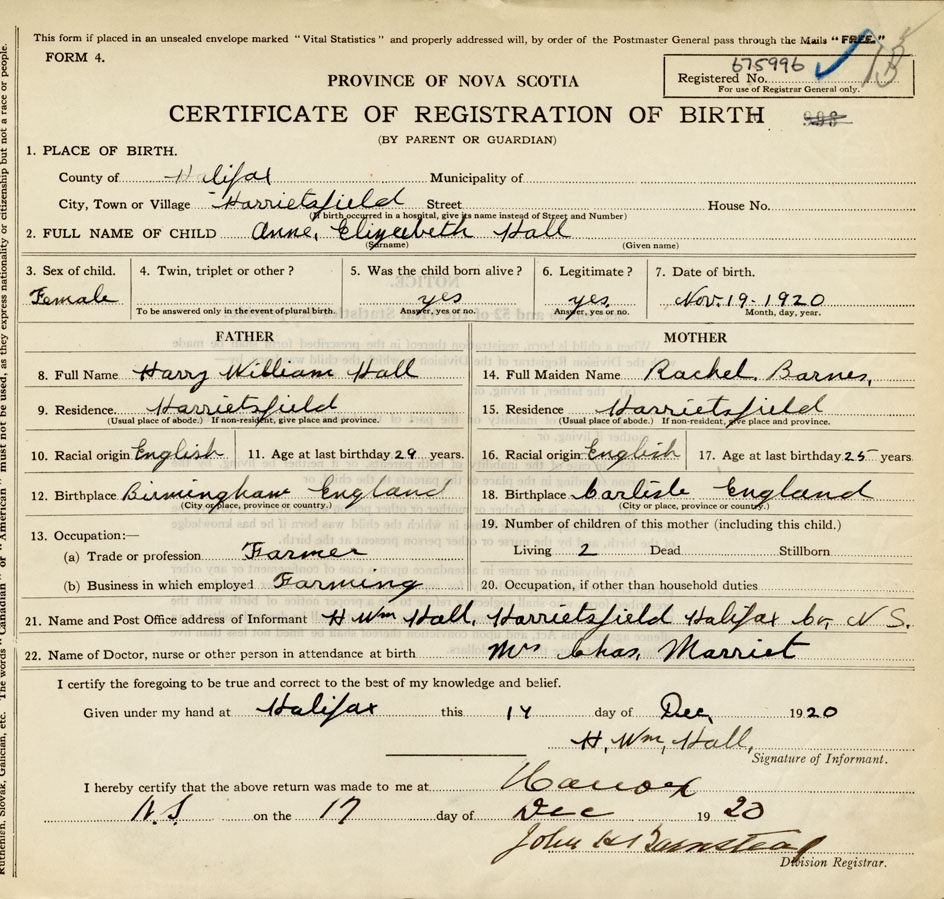 This form if placed in an unsealed envelope marked "Vital Statistics" and properly addressed will, by order of the Postmaster General pass through the Mails "FREE."
FORM 4.
675996
Registered No.
For use of Registrar General only.
PROVINCE OF NOVA SCOTIA
CERTIFICATE OF REGISTRATION OF BIRTH
(BY PARENT OR GUARDIAN)
1. PLACE OF BIRTH.
County of Halifax Municipality of
City, Town or Village Harrietsfield Street House No.
(If birth occurred in a hospital, give its name instead of Street and Number)
2. FULL NAME OF CHILD Anne, Elizabeth Hall
(Surname) (Given name)
3. Sex of child. 4. Twin, triplet or other? 5. Was the child born alive? 6. Legitimate? 7. Date of birth.
Female yes yes Nov. 19-1920
To be answered only in the event of plural birth. Answer, yes or no. Answer, yes or no. Month, day, year.
FATHER MOTHER
8. Full Name Harry William Hall 14. Full Maiden Name Rachel. Barnes,
9. Residence Harrietsfield 15. Residence Harrietsfield
(Usual place of abode.) If non-resident, give place and province. (Usual place of abode.) If non-resident, give place and province.
10. Racial origin English 11. Age at last birthday 29 years. 16. Racial origin English 17. Age at last birthday 25 years
12. Birthplace Birmingham England 18. Birthplace Carlisle England
(City or place, province or country.) (City or place, province or country.)
13. Occupation:— 19. Number of children of this mother (including this child.)
(a) Trade or profession Farmer Living 2 Dead Stillborn
(b) Business in which employed Farming 20. Occupation, if other than household duties
21. Name and Post Office address of Informant H Wm Hall, Harrietsfield Halifax Co, N S.
22. Name of Doctor, nurse or other person in attendance at birth Mrs Chas, Marriet
I certify the foregoing to be true and correct to the best of my knowledge and belief.
Given under my hand at Halifax this 14 day of Dec, 1920
H. Wm, Hall,
Signature of Informant.
I hereby certify that the above return was made to me at
N.S. on the 17 day of Dec 1920
John H Barnstead
Division Registrar.
Ruthenian, Slovak, Galician, etc. The words "Canadian" or "American" must not be used, as they express nationality or citizenship but not a race or people.